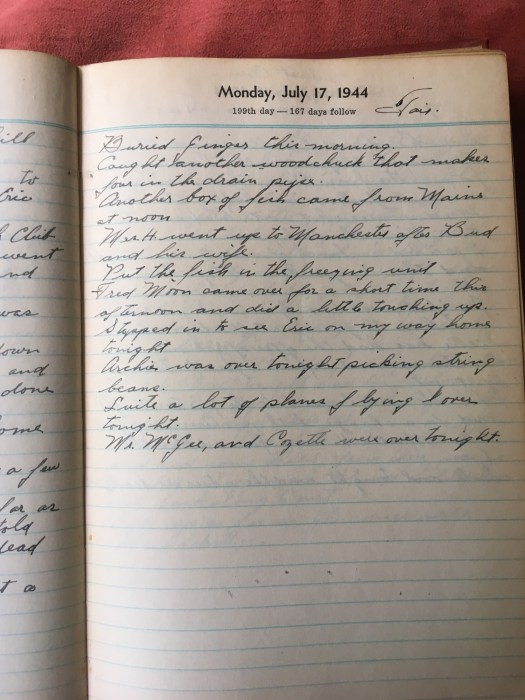 ill
to
Eric
Club
went
nd
was
down
and
done
ome
a few
as
told
dead
t a
Monday, July 17, 1944
199th day — 167 days follow
Fair.
Buried Ginger this morning.
Caught another woodchuck that makes
four in the drain pipe.
Another box of fish came from Maine
at noon
Mrs. H. went up to Manchester after Bud
and his wife.
Put the fish in the freezing unit
Fred Moon came over for a short time this
afternoon and did a little touching up.
Stopped in to see Eric on my way home
tonight
Archie was over tonight picking string
beans.
Quite a lot of planes flying over
tonight.
Mr. McGee, and Cozette were over tonight.